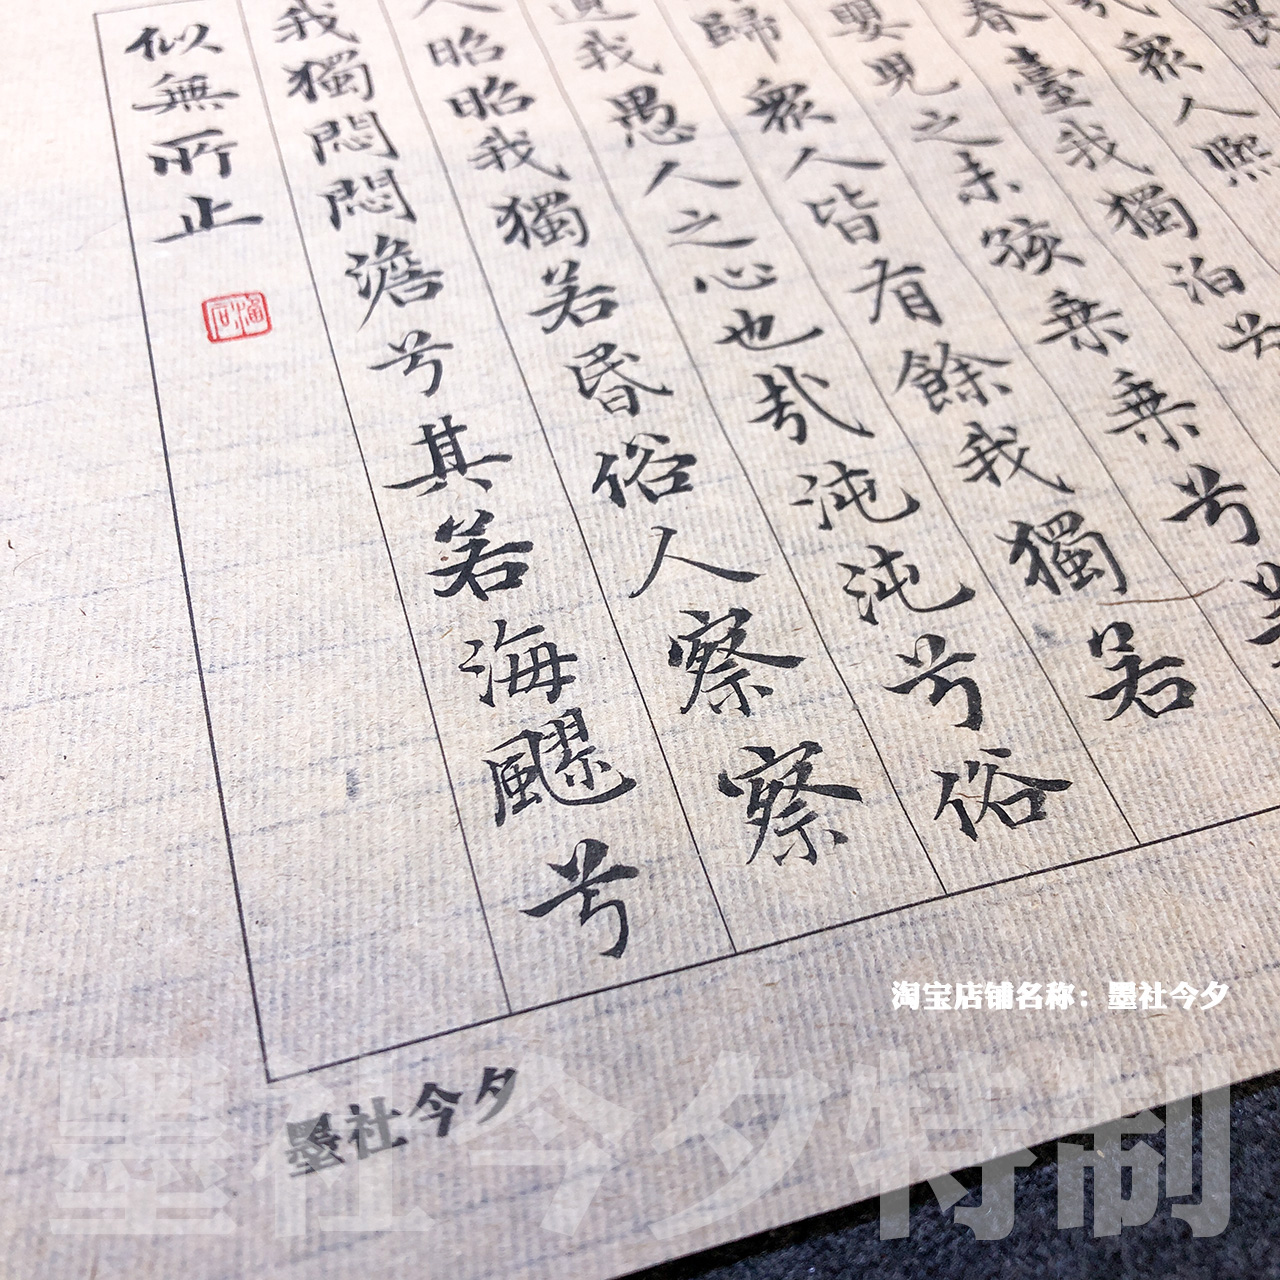 畏
哉衆人熙
春臺我獨泊兮
嬰兒之未孩乗乗兮
歸衆人皆有餘我獨若
遺我愚人之心也哉沌沌兮俗
人昭昭我獨若昏俗人察察
我獨悶悶澹兮其若海飂兮
似無所止
淘宝店铺名称：墨社今夕
墨社今夕
墨社今夕特制